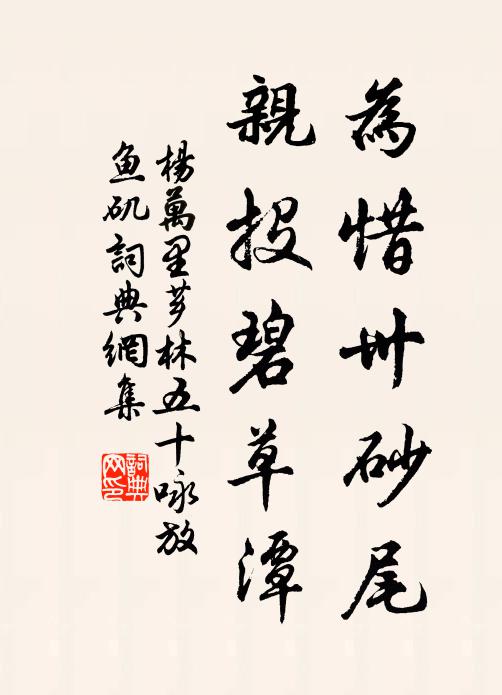 為惜卅砂尾
親投碧草潭
楊萬里芗林五十咏放
鱼矶詞典網集
詞典网印